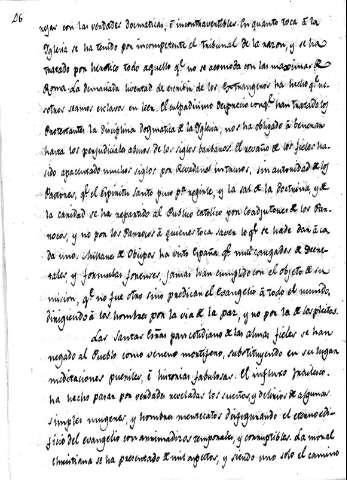 26
negar con las verdades dogmaticas, è incontravertibles. En quanto toca à la
Yglesia se ha tenido por incompetente el Tribunal de la razon, y se ha
tratado por heretico todo aquello qe. no se acomoda con las maximas de
Roma. La demasiada livertad de escribir de los Extrangeros ha hecho qe. no-
sotros seamos esclavos en leer. El culpadisimo desprecio con qe. han tratado los
Protestantes la Disciplina Dogmatica de la Yglesia, nos ha obligado à venerar
hasta los perjudiciales abusos de los siglos barbaros. El rebaño de los fieles ha
sido apacentado muchos siglos por Pastores intrusos, sin autoridad de los
Pastores, qe. el Espiritu Santo puso pa. regirle, y la sal de la Doctrina, y de
la caridad se ha repartido al Publico catolico por coadjutores de los Par-
rocos, y no por los Parrocos à quienes toca saver lo qe. se ha de dar à ca-
da uno. Millares de Obispos ha visto España qe. mui cargados de Decre-
tales, y formulas forenses, jamas han cumplido con el objeto de su
mision, qe. no fue otro sino predicar el Evangelio à todo el mundo,
dirigiendo à los hombres por la via de la paz, y no por la de los pleitos.
Las Santas Escras. pan cotidiano de las almas fieles se han
negado al Pueblo como veneno mortifero, substituyendo en su lugar
meditaciones pueriles, è historias fabulosas. El influxo
ha hecho pasar por verdades reveladas los sueños, y delirios de algunas
simples mugeres, y hombres mentecatos desfigurando el eterno edi-
ficio del evangelio con arrimadizos temporales, y corruptibles. La moral
christiana se ha presentado de mil aspectos, y siendo uno solo el camino